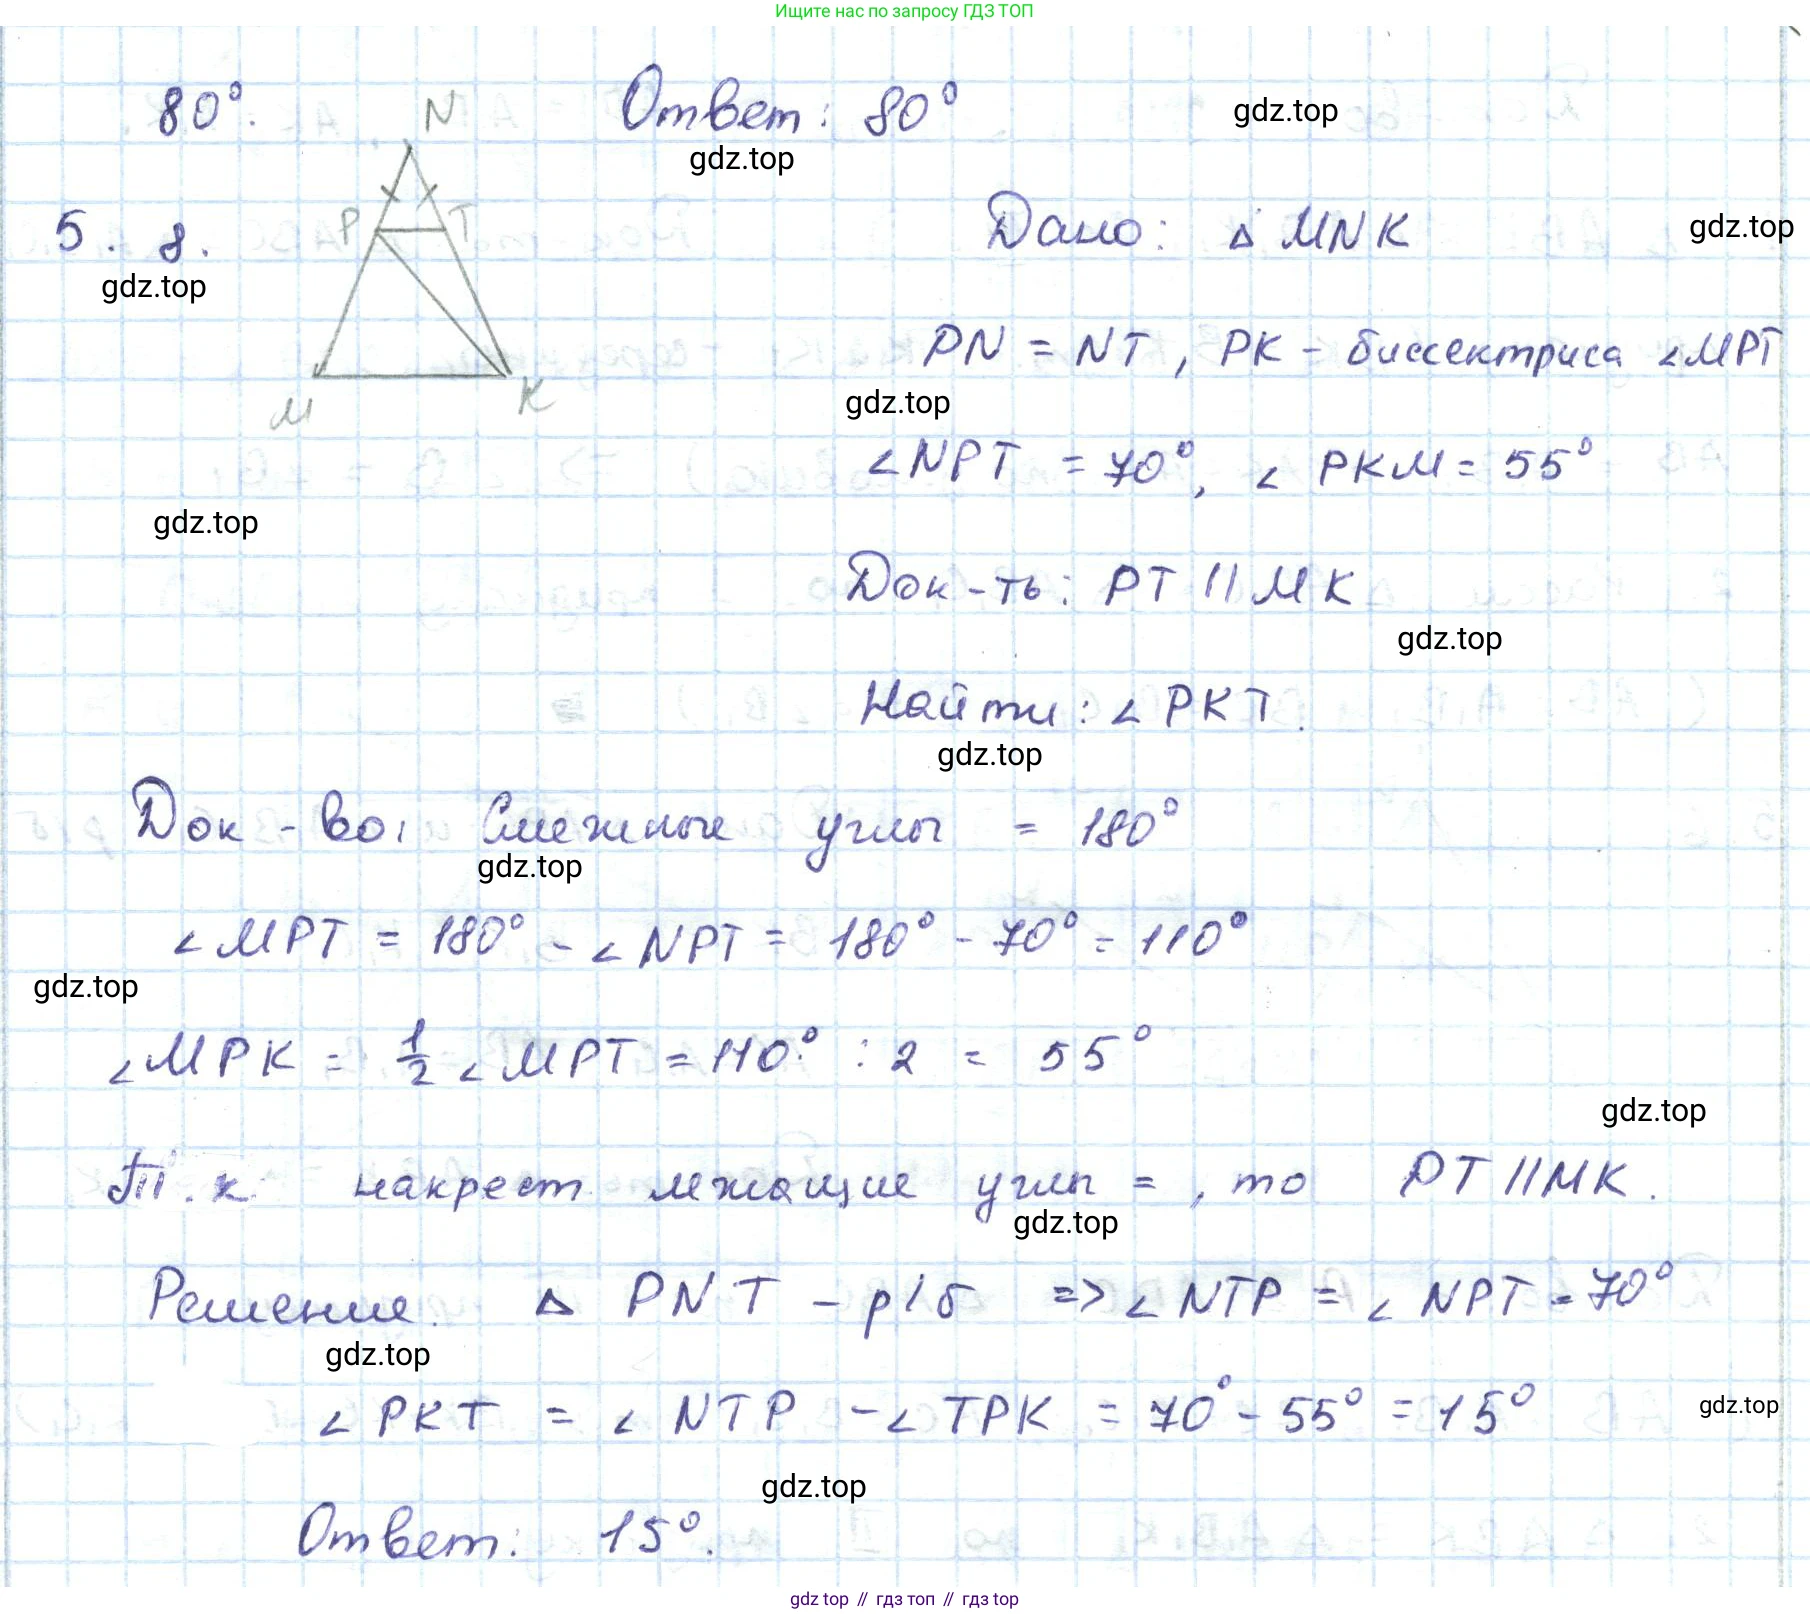 Ищите нас по запросу ГДЗ ТОП
80°. N Ответ: 80° gdz.top
gdz.top
5. 8. P T Дано: △ MNK gdz.top
gdz.top
PN = NT, PK - биссектриса ∠MPT
M K gdz.top
∠NPT = 70°, ∠ PKM = 55°
gdz.top
Док-ть: PT || MK
gdz.top
Найти: ∠ PKT.
gdz.top
Док-во: Смежные углы = 180°
gdz.top
∠MPT = 180° - ∠NPT = 180° - 70° = 110°
gdz.top
∠MPK = 1/2 ∠MPT = 110° : 2 = 55°
gdz.top
Т.к накрест лежащие углы =, то PT || MK.
gdz.top
Решение. △ PNT - р/б => ∠NTP = ∠NPT = 70°
gdz.top
∠PKT = ∠NTP - ∠TPK = 70° - 55° = 15° gdz.top
gdz.top
Ответ: 15°.
gdz top // гдз топ // гдз top